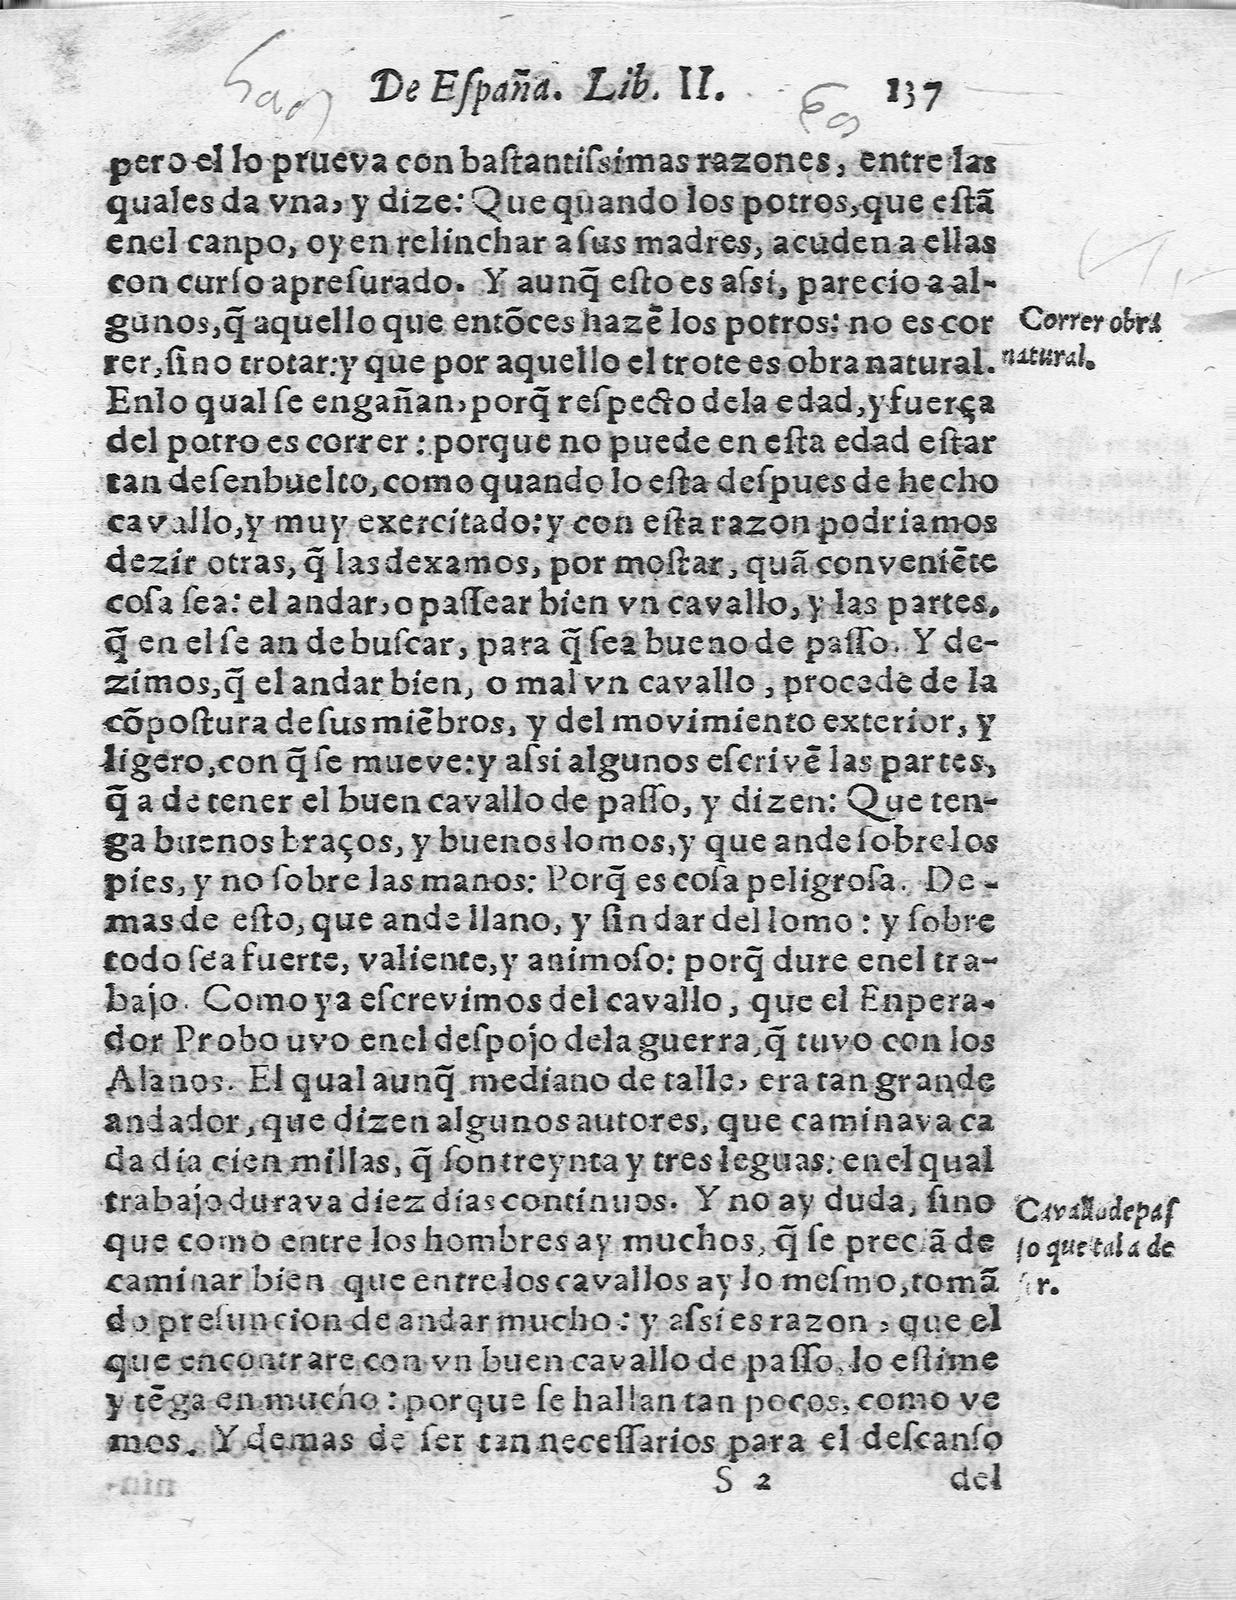 De Eſpaña. Lib. II. 137
pero el lo prueva con baſtantiſsimas razones, entre las
quales da vna, y dize: Que quando los potros, que eſtã
enel canpo, oyen relinchar a ſus madres, acuden a ellas
con curſo apreſurado. Y aunq̃ eſto es aſsi, parecio a al-
gunos, q̃ aquello que entõces hazẽ los potros: no es cor
rer, ſino trotar: y que por aquello el trote es obra natural.
Correr obra
natural.
Enlo qual ſe engañan, porq̃ reſpecto dela edad, y fuerça
del potro es correr: porque no puede en eſta edad eſtar
tan deſenbuelto, como quando lo eſta deſpues de hecho
cavallo, y muy exercitado: y con eſta razon podriamos
dezir otras, q̃ las dexamos, por moſtar, quã conveniẽte
coſa ſea: el andar, o paſſear bien vn cavallo, y las partes,
q̃ en el ſe an de buſcar, para q̃ ſea bueno de paſſo. Y de-
zimos, q̃ el andar bien, o mal vn cavallo, procede de la
cõpoſtura de ſus miẽbros, y del movimiento exterior, y
ligero, con q̃ ſe mueve: y aſsi algunos eſcrivẽ las partes,
q̃ a de tener el buen cavallo de paſſo, y dizen: Que ten-
ga buenos braços, y buenos lomos, y que ande ſobre los
pies, y no ſobre las manos: Porq̃ es coſa peligroſa. De-
mas de eſto, que ande llano, y ſin dar del lomo: y ſobre
todo ſea fuerte, valiente, y animoſo: porq̃ dure enel tra-
bajo. Como ya eſcrevimos del cavallo, que el Enpera-
dor Probo uvo enel deſpojo dela guerra, q̃ tuvo con los
Alanos. El qual aunq̃ mediano de talle, era tan grande
andador, que dizen algunos autores, que caminava ca
da dia cien millas, q̃ ſon treynta y tres leguas: enel qual
trabajo durava diez dias continuos. Y no ay duda, ſino
que como entre los hombres ay muchos, q̃ ſe preciã de
Cavallo de paſ
ſo que tal a de
ſer.
caminar bien que entre los cavallos ay lo meſmo, tomã
do preſuncion de andar mucho: y aſsi es razon, que el
que encontrare con vn buen cavallo de paſſo, lo eſtime
y tẽga en mucho: porque ſe hallan tan pocos, como ve
mos. Y demas de ſer tan neceſſarios para el deſcanſo
S 2 del